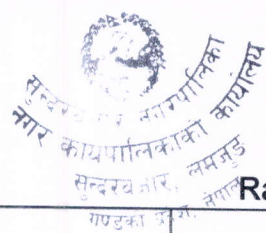 सुन्दरबजार नगरपालिका
नगर कार्यपालिकाको कार्यालय
सुन्दरबजार, लमजुङ
गण्डकी प्रदेश, नेपाल
Ra